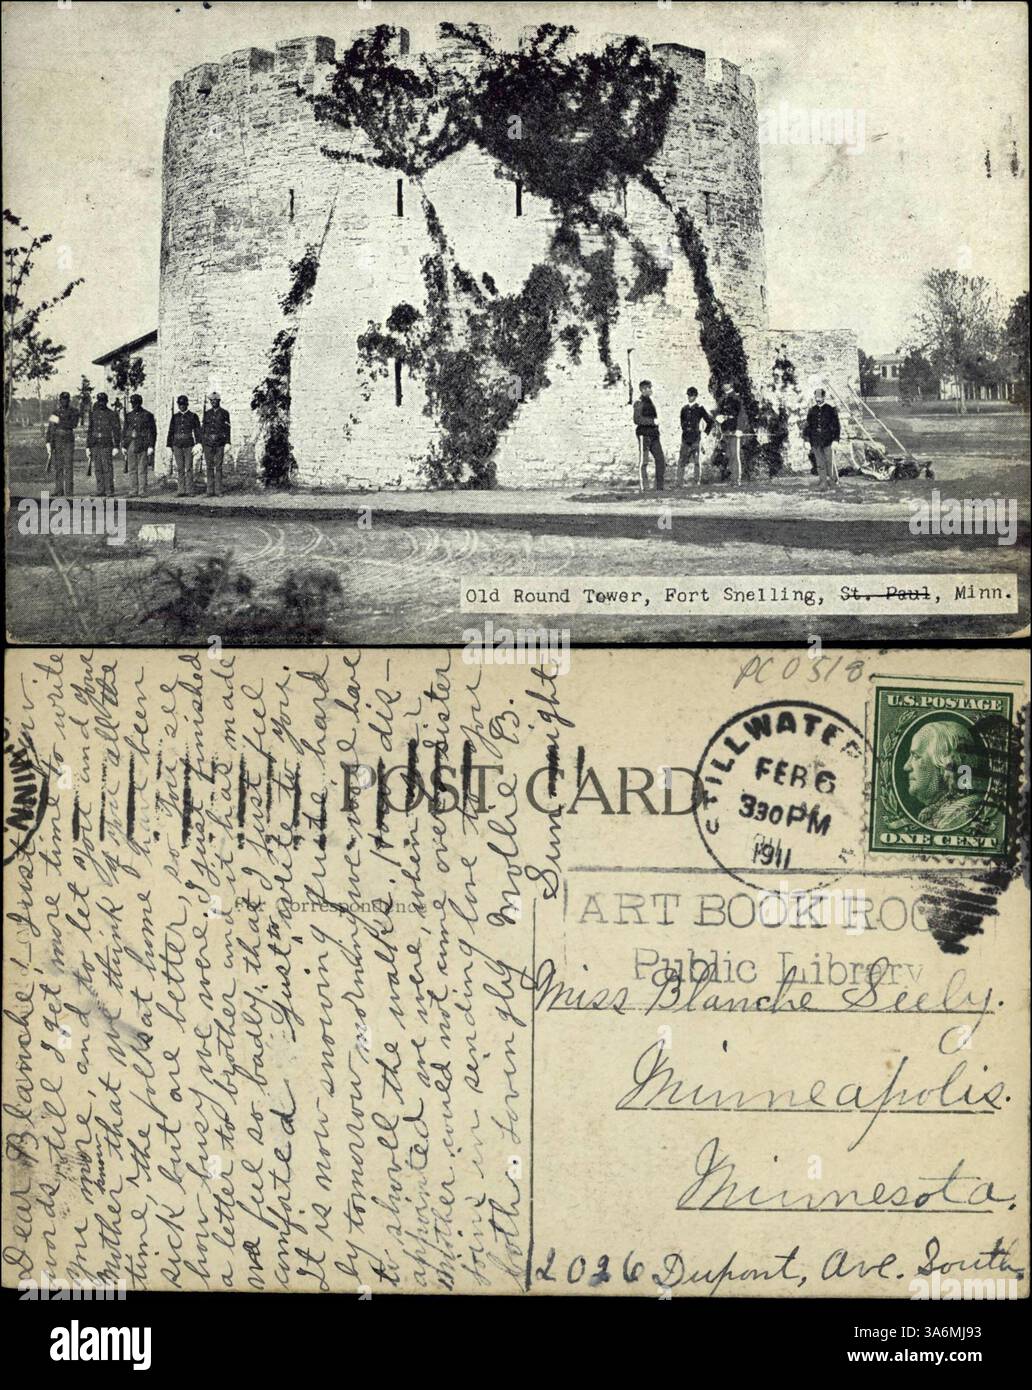 Old Round Tower, Fort Snelling, St. Paul, Minn.
PC0518
STILLWATER
FEB 6
330 PM
1911
MINN.
U.S. POSTAGE
ONE CENT
POST CARD
For Correspondence
ART BOOK ROO
Public Library
Miss Blanche Seely.
Minneapolis.
Minnesota.
2026 Dupont, Ave. South
Sun. night.
Dear Blanche; - Just a few
words till I get more time to write
you more, and to let you and your
mother know that we think of you all the
time, the folks at home have been
sick but are better, so you see
how busy we were. I just finished
a letter to brother and it has made
me feel so badly, that I just feel
comforted just to write to you.
It is now snowing quite hard
by tomorrow morning we will have
to shovel the walks. How dis-
appointed we were, when
mother could not come over. Sister
joins in sending love to you
both. Lovingly Mollie B.
alamy
a
Image ID: 3A6MJ93
www.alamy.com